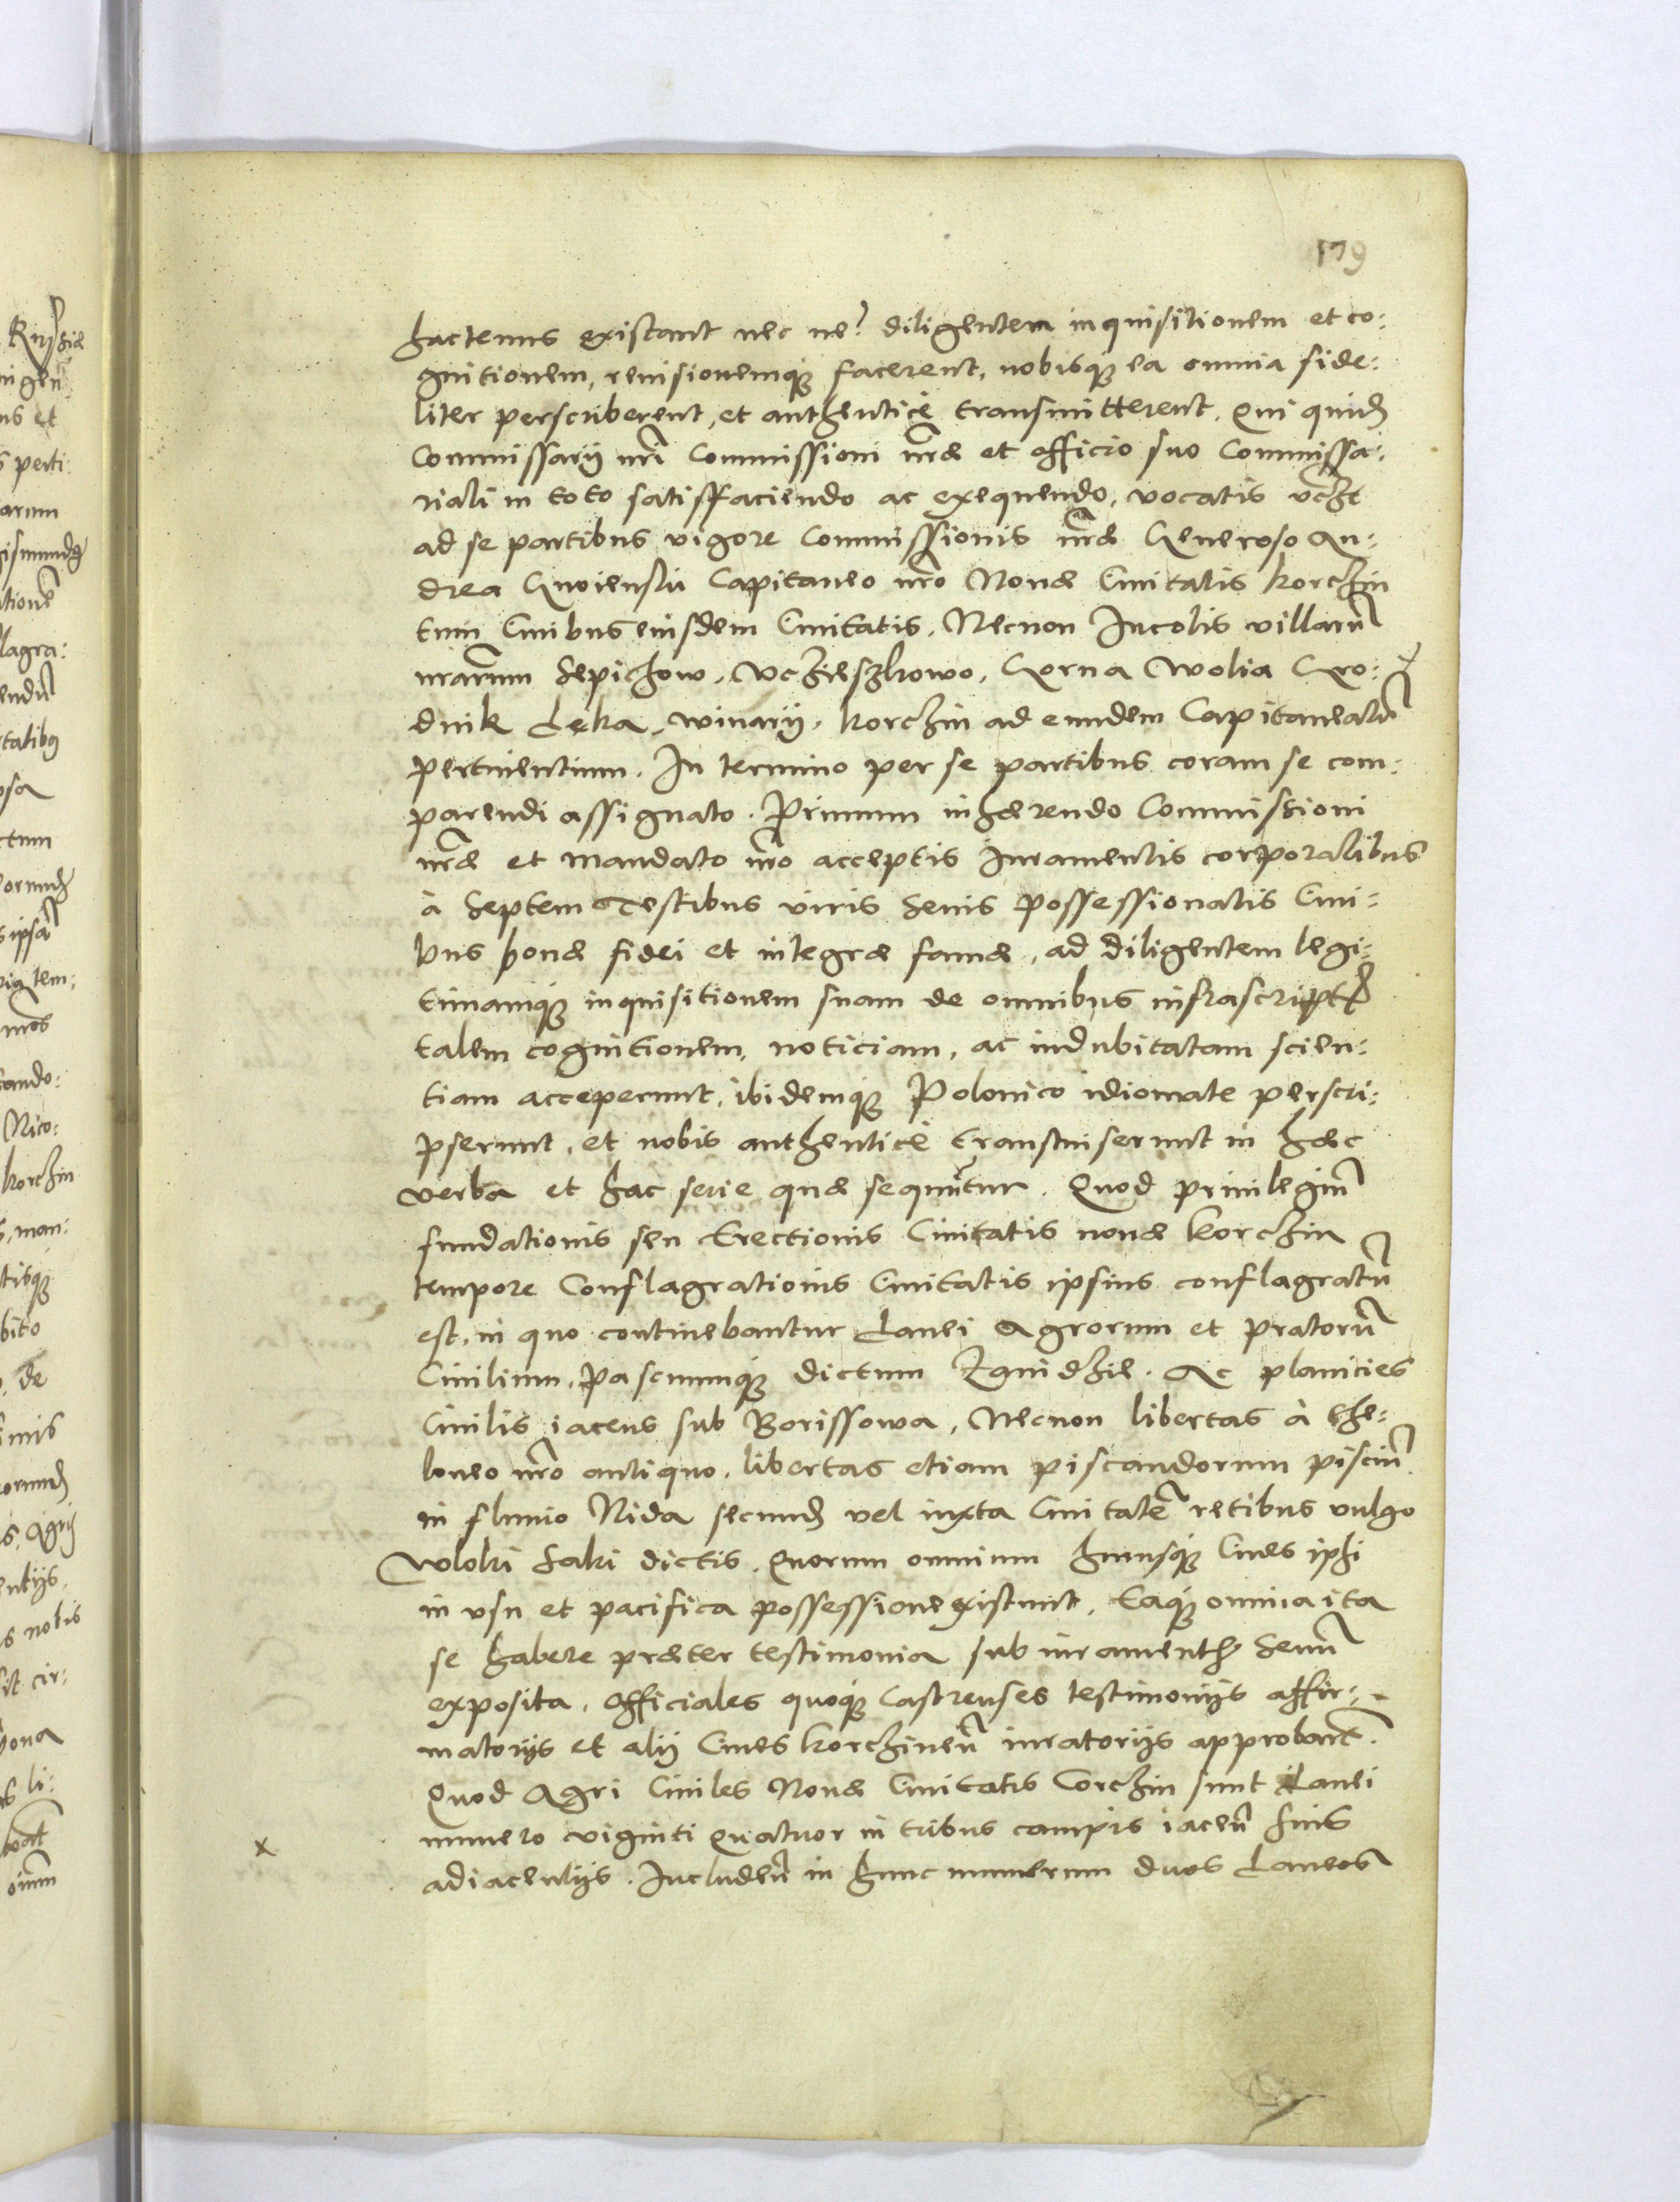 179
hactenus existant nec ne? diligentem inquisitionem et co:
gnitionem, reuisionemq̃ facerent, nobisq̃ ea omnia fide:
liter perscriberent, et authenticè transmitterent. Qui quidẽ
Commissarij nr̃i Commissioni nr̃æ et officio suo Commissa:
riali in toto satisfaciendo ac exequendo, vocatis
ad se partibus vigore Commissionis nr̃æ Generoso An:
drea Capitaneo nr̃o Nouæ Ciuitatis Korchin
tum Ciuibus eiusdem Ciuitatis, Necnon Incolis villarũ
nr̃arum Sepichow, Vczieszkowo, Gorna Wolia Gro:
dnik Łęka, winarij, Korchin ad eundem Capitaneatũ
pertinentium. In termino per se partibus coram se com:
parendi assignato. Primum inhærendo Commissioni
nr̃æ et mandato nr̃o acceptis Iuramentis corporalibus
à Septem Testibus viris Senis Possessionatis Ciui:
bus bonæ fidei et integræ famæ, ad diligentem legi:
timamq̃ inquisitionem suam de omnibus infrascript
talem cognitionem, noticiam, ac indubitatam scien:
tiam acceperunt, ibidemq̃ Polonico idiomate perscri:
pserunt, et nobis authenticè transmiserunt in hæc
verba et hac serie quæ sequũtur. Quod priuilegiũ
fundationis seu Erectionis Ciuitatis nouæ Korchin
tempore Conflagrationis Ciuitatis ipsius conflagratũ
est, in quo continebantur Lanei Agrorum et pratorũ
Ciuilium, Pascuumq̃ dictum Zawidzie. Ac planicies
Ciuilis iacens sub Borissowa, Necnon libertas à the:
loneo nr̃o antiquo, libertas etiam piscandorum pisciũ
in fluuio Nida secundũ vel iuxta Ciuitatẽ retibus vulgo
Wloki Saki dictis. Quorum omnium hucusq̃ Ciues ipsi
in vsu et pacifica possessione existunt, Eaq̃ omnia ita
se habere præter testimonia sub iuramento Senũ
exposita, Officiales quoq̃ Castrenses testimonijs affir:
matorijs et alij Ciues Korchineñ iuratorijs approbarũt.
Quod Agri Ciuiles Nouæ Ciuitatis Corchin sunt Lanei
numero viginti Quatuor in tribus campis iaceñ suis
x
adiacentijs. Includeñ in hunc numerum duos Laneos